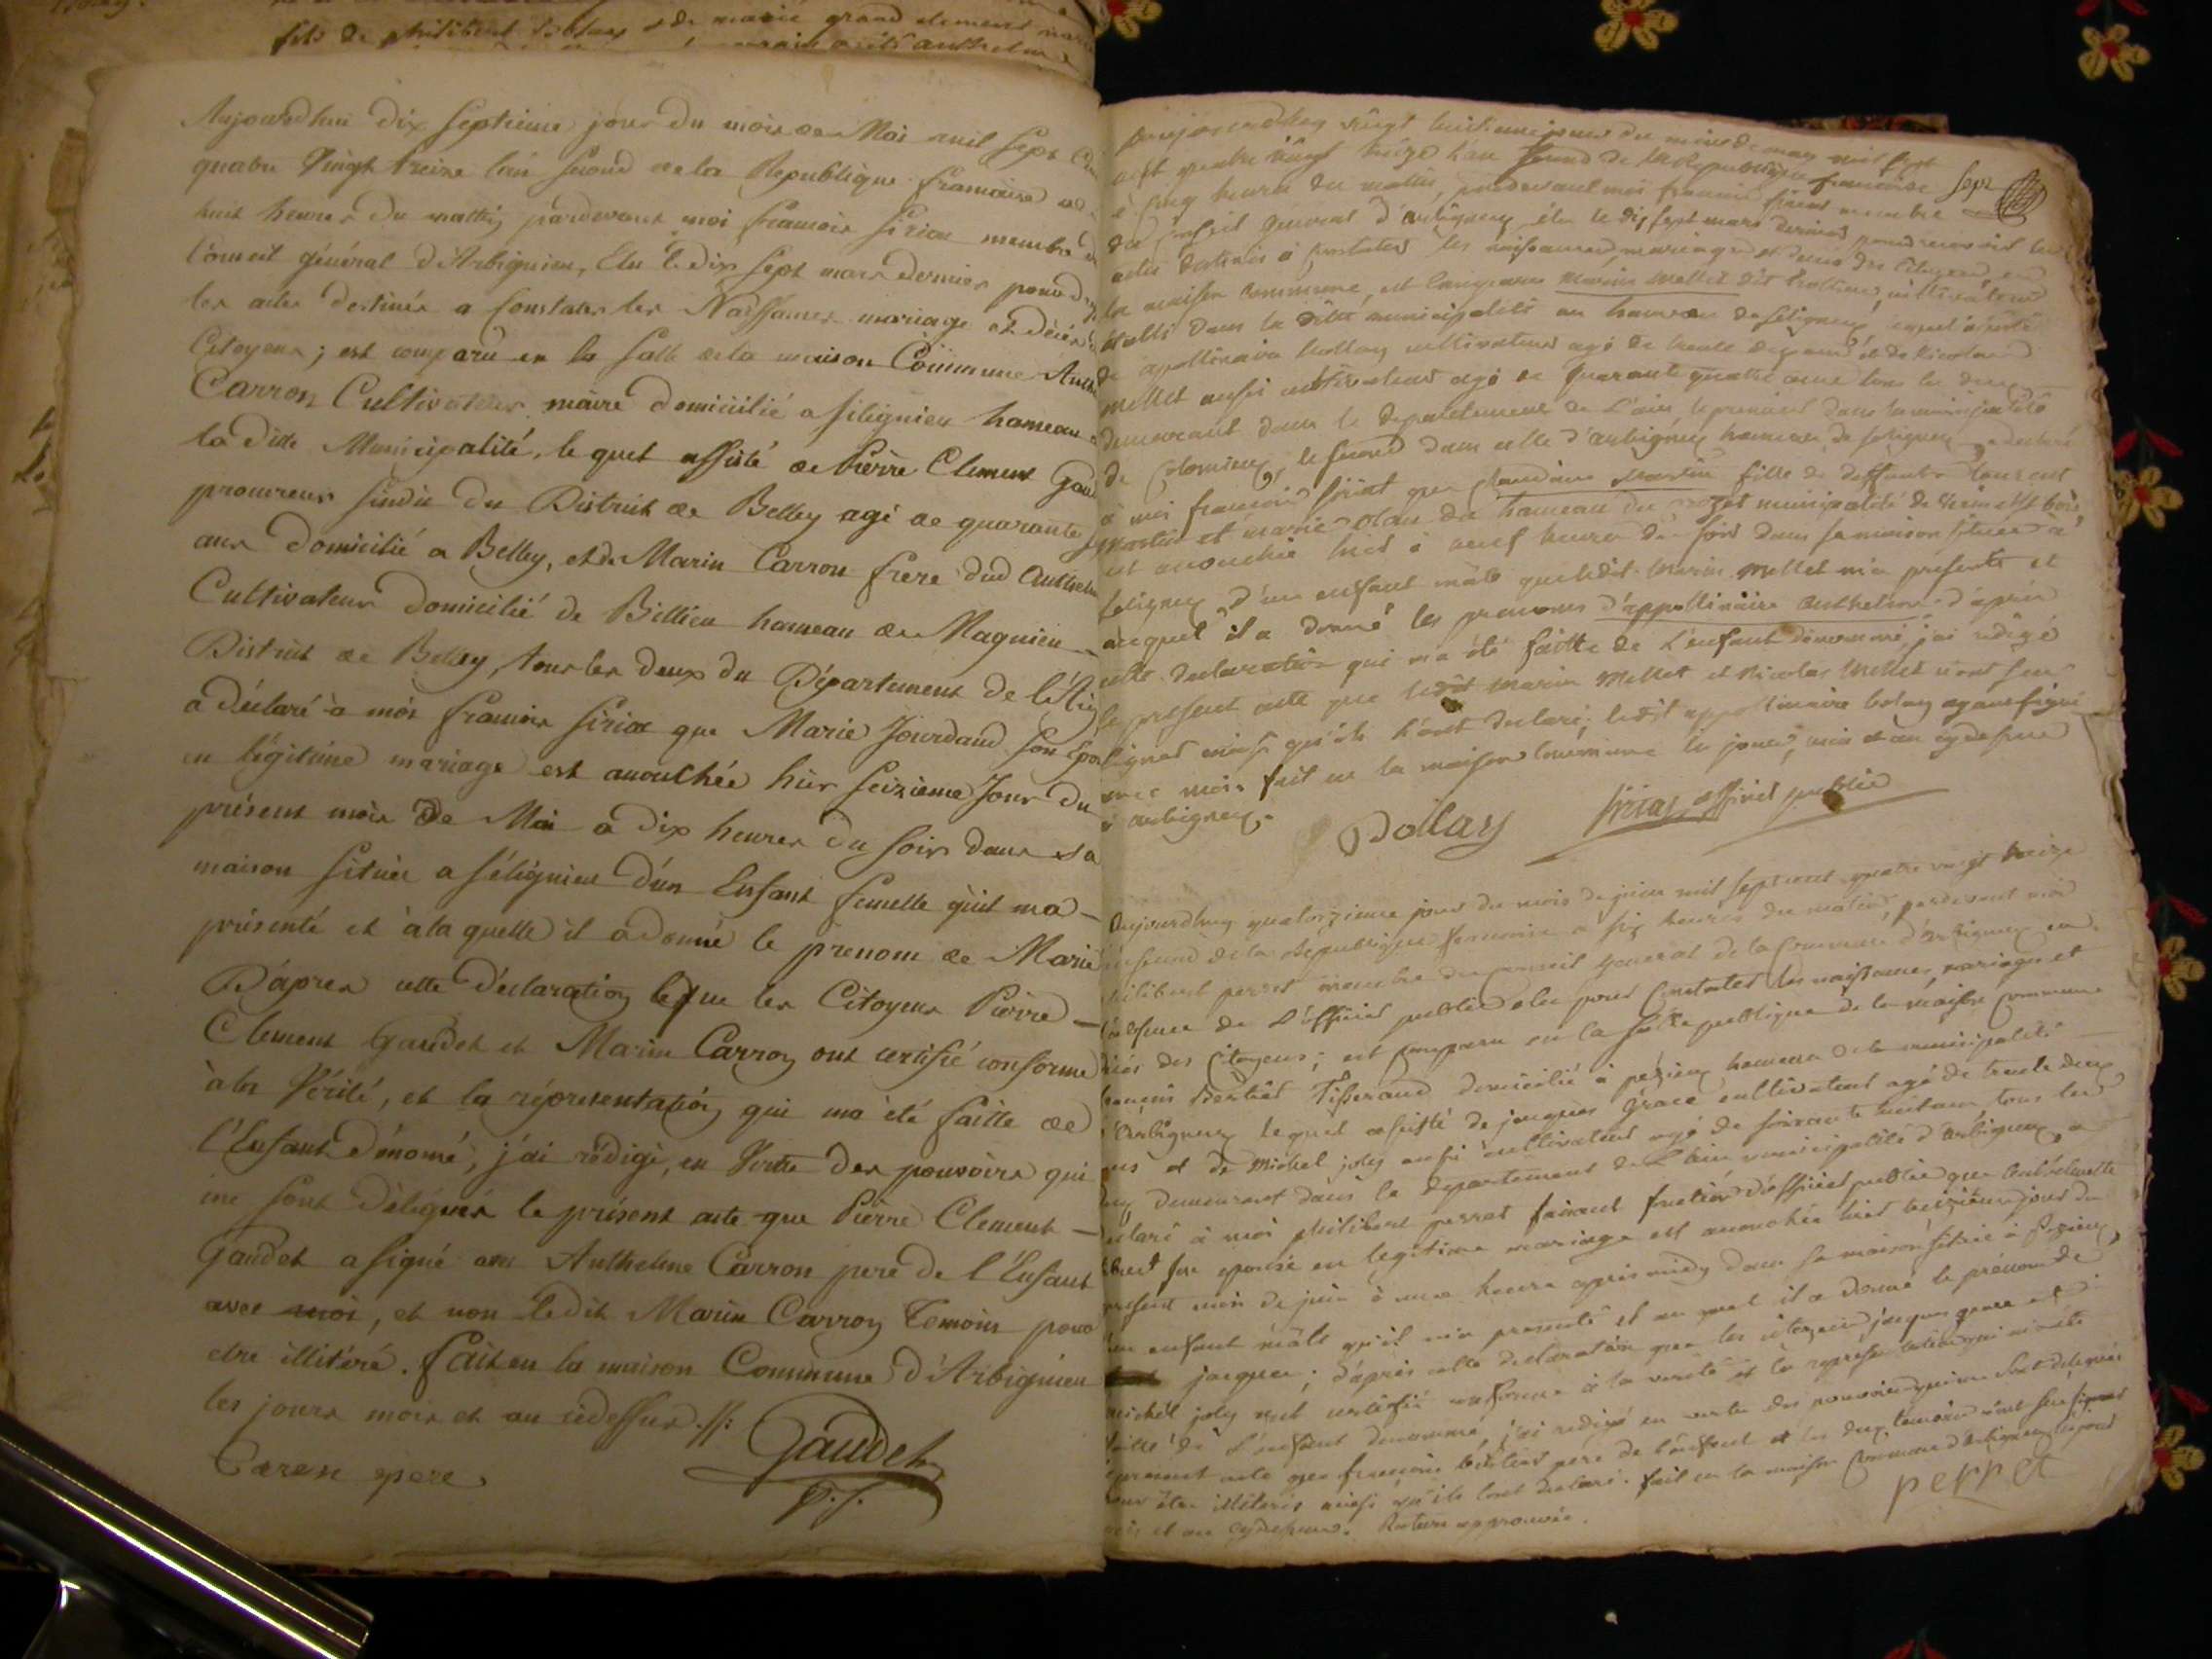 fils de philibert et de marie grand clement
Aujourdhui Dix septieme jour du mois de Mai mil sept Cent
quatre Vingt treize l'an second de la République francaise a
huit heures du mattin pardevant moi francois siriar membre du
Conseil général d'Arbignieu, Elu le dix sept mars dernier pour
les actes destinés a Constater les Naissances mariage et décès
Citoyens; est comparu en la salle de la maison Commune Anthelme
Carron Cultivateur maire domicilié a siliginieu hameau
la ditte Municipalité, le quel assisté de Pierre Clement Gaudet
procureur sindic du District de Belley agé de quarante
ans Domicilié a Belley, et de Marin Carron frere dud Anthelme
Cultivateur domicilié de Billieu hameau de Magnieu
District de Belley, tous les deux du Département de l'Ain
a déclaré à moi francois siriar que Marie Jourdand son épouse
en légitime mariage est acouchée hier seizieme Jour du
présent mois de Mai a dix heures du soir dans sa
maison située a séliginieu d'un Enfant femelle qu'il ma
présenté et à la quelle il a donné le prenom de Marie
D'apres cette déclaration que les Citoyens Pierre
Clement Gaudet et Marin Carron ont certifié conforme
à la Vérité, et la réprésentation qui ma été faitte de
l'Enfant dénomé, j'ai rédigé, en Vertu des pouvoirs qui
me sont délégués le présent acte que Pierre Clement
Gaudet a signé avec Anthelme Carron pere de l'Enfant
avec moi, et non ledit Marin Carron Temoin pour
etre illitéré. fait en la maison Commune d'Arbignieu
les jours mois et an cidessus
Caren pere Gaudet
p. s.
aujourdhuy vingt huitieme jour du mois de may mil sept
cent quatre vingt treize l'an second de la Republique francoise sept
à cinq heures du mattin, pardevant moi francois siriat membre
du Conseil general d'arbignieu élu le dix sept mars dernier pour recevoir les
actes destinés à constater les naissances, mariages et deces des citoyens, en
la maison commune, est comparu marin mellet dit cultivateur
dans la ditte municipalité au hameau de seligneux
de appollinaire bollay cultivateur agé de trente ans et de Nicolas
mellet aussi cultivateur agé de quarante quatre ans tous les deux
demeurant dans le departement de L'ain, le premier dans la municipalité
de Colomieu, le second dans celle d'arbignieu hameau de seligneux a declaré
à moi francois siriat que claudine martin fille de deffunts Laurent
martin et marie du hameau du municipalité de
est acouchée hier à neuf heures du soir dans sa maison située a
seligneux d'un enfant mâle que ledit marin mellet m'a presenté et
auquel il a donné les prenoms d'appollinaire anthelme d'apres
cette declaration qui m'a été faitte de l'enfant denommé, j'ai redigé
le present acte que ledit marin mellet et nicolas mellet n'ont su
signer ainsi qu'ils l'ont declaré; ledit appollinaire bolay ayant signé
avec moi. fait en la maison commune le jour, mois et an cydessus
à arbigneux.
Bollay siriat officier public
Aujourdhuy quatorzieme jour du mois de juin mil sept cent quatre vingt treize
second de la Republique francoise à six heures du matin, pardevant moi
philibert perret membre du conseil general de la Commune d'arbigneux en
l'absence de L'officier public élu pour constater les naissances, mariages et
décès des citoyens; est comparu en la salle publique de la maison commune
françois Bertiet Tisserand domicilié à peyzieu hameau de la municipalité
d'arbigneux lequel assisté de jacques grace cultivateur agé de trente deux
ans et de michel joly aussi cultivateur agé de soixante huit ans tous les
deux demeurant dans le departement de L'ain municipalité d'arbigneux, a
declaré à moi philibert perret faisant fonction d'officier public que
son epouse en legitime mariage est acouchée hier treizieme jour du
present mois de juin à une heure apres midy dans sa maison située à Peyzieu
d'un enfant mâle qu'il m'a presenté et au quel il a donné le prénom de
jacques; d'après cette declaration que les citoyens jacques grace et
michel joly ont certifié conforme à la verité et la representation qui m'a été
faitte de L'enfant denommé, j'ai redigé en vertu des pouvoirs qui me sont delegués
le present acte que françois bertiet pere de l'enfant et les deux temoins n'ont su signer
pour être illiterés ainsi qu'ils l'ont declaré. fait en la maison commune d'arbigneux le jour
mois et an cydessus. Rature approuvée. perret